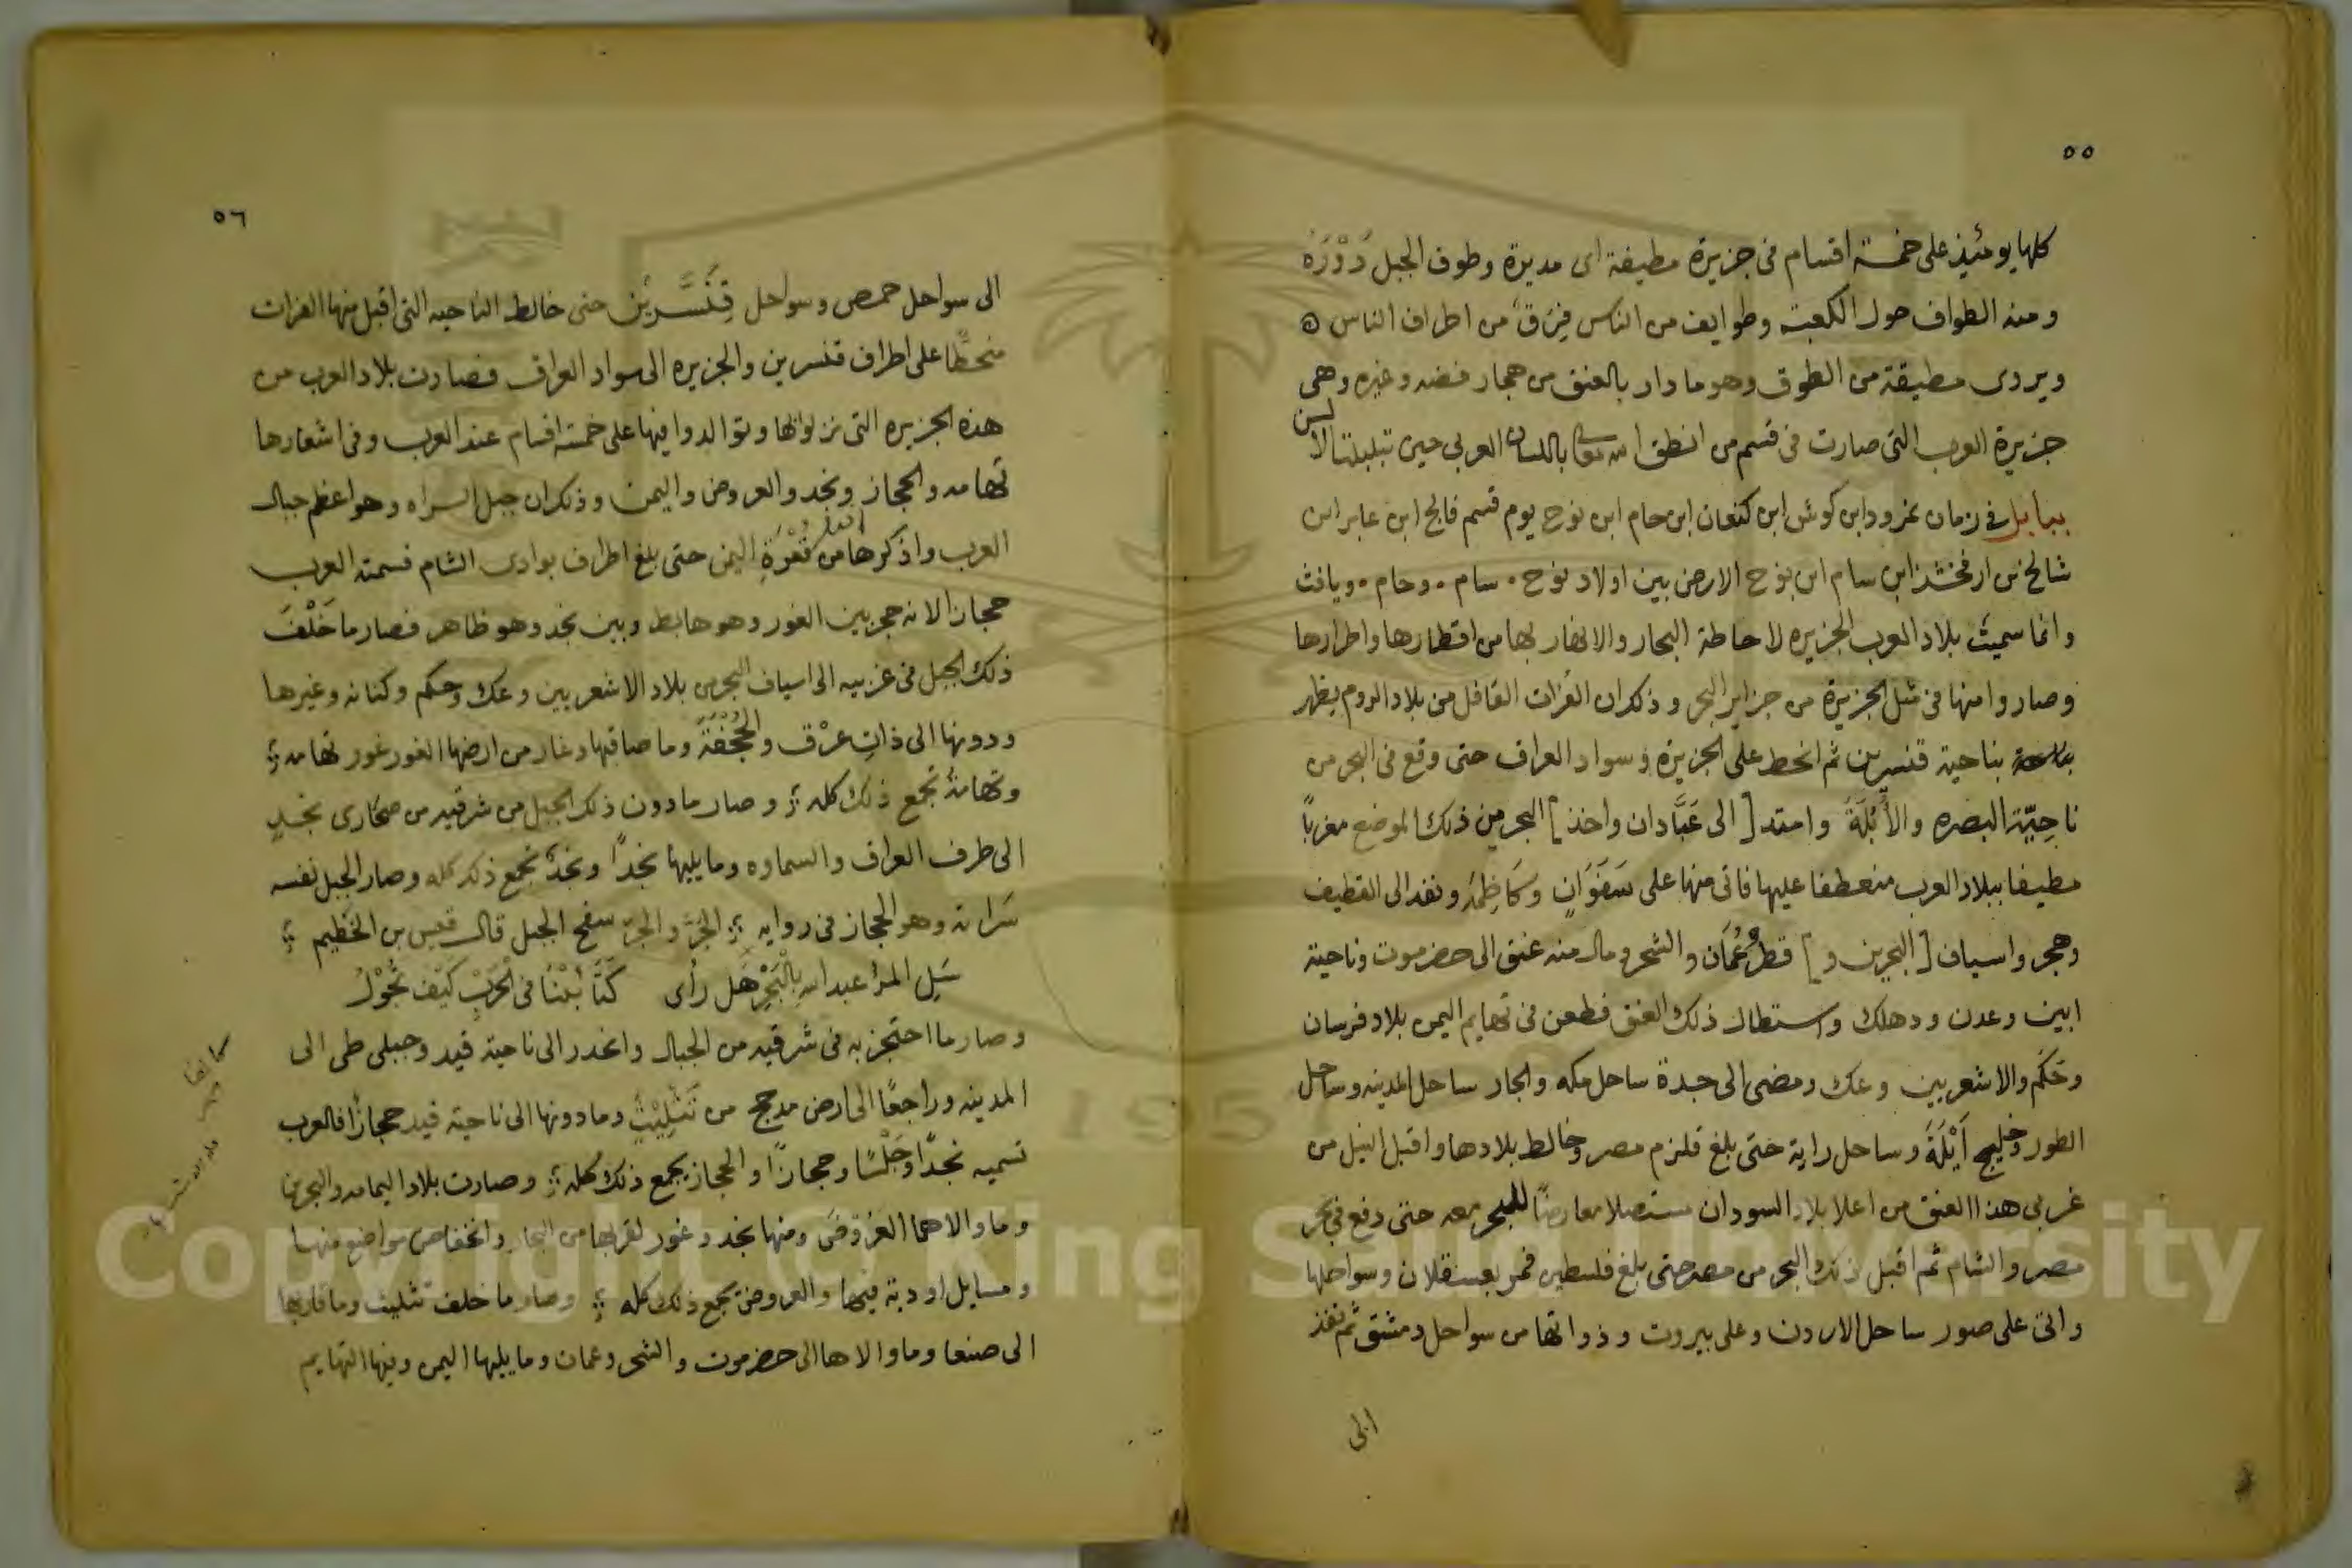 ٥٥
كلها يومئيذ على خمسة اقسام فى جزيرة مطيفة اى مديرة وطوف الجبل دَوْرَهُ
ومنه الطواف حول الكعبة وطوايف من الناس فِرَق من اطراف الناس
ويروى مطيقة من الطوق وهو ما دار بالعنق من حجار فضه وغيره وهى
جزيرة العرب التى صارت فى قسم من انطق باللسان العربى حين تبلبلت الالسن
ببابل فى زمان نمرود ابن كوش ابن كنعان ابن حام ابن نوح يوم قسم فالخ ابن عابر ابن
شالخ بن ارفخشذ ابن سام ابن نوح الارض بين اولاد نوح ٠ سام ٠ وحام ٠ ويافث
وانما سميت بلاد العرب الجزيره لاحاطة البحار والانهار بها من اقطارها واطرارها
وصاروا منها فى مثل الجزيرة من جزاير البحر وذكر ان الفرات القافل من بلاد الروم يظهر
بناحية قنسرين ثم انحط على الجزيرة وسواد العراق حتى وقع فى البحر من
ناحِيّة البصره والأُبُلَّةَ وامتد [ الى عَبَّادان واخذ ] البحر من ذلك الموضع مغرباً
مطيفا ببلاد العرب منعطفا عليها فاتى منها على سَفَوَانٍ وكَاظِمَه ونفد الى القطيف
وهجر واسياف [ البحرين و ] قطر وعُمَان والشحر ومال منه عنق الى حضرموت وناحية
ابين وعدن ودهلك واستطال ذلك العنق فطعن فى تهايم اليمن بلاد فرسان
وحَكَم والاشعريين وعك ومضى الى جدة ساحل مكه والجار ساحل المدينه وساحل
الطور وخليج اَيْلَةَ وساحل راية حتى بلغ قلزم مصر وخالط بلادها واقبل النيل من
غربى هذا العنق من اعلا بلاد السودان مستصلا معارضًا للبحر معه حتى دفع فى بحر
مصر والشام ثم اقبل ذلك البحر من مصر حتى بلغ فلسطين فمر بعسقلان وسواحلها
واتى على صور ساحل الاردن وعلى بيروت وذواتها من سواحل دمشق ثم نفذ
الى
٥٦
الى سواحل حمص وسواحل قِنَّسْرِيْن حتى خالط الناحيه التى اقبل منها الفرات
منحطًا على اطراف قنسرين والجزيره الى سواد العراق فصارت بلاد العرب من
هذه الجزيره التى نزلوها وتوالدوا فيها على خمسة اقسام عند العرب وفى اشعارها
تهامه والحجاز ونجد والعروض واليمن وذلك ان جبل السراه وهو اعظم جبال
العرب واذكرها من قُعْرَةِ اليمن حتى بلغ اطراف بوادى الشام فسمته العرب
حجازا لانه حجز بين الغور وهو هابط وبين نجد وهو ظاهر فصار ما خَلْفَ
ذلك الجبل فى غربيه الى اسياف البحر من بلاد الاشعريين وعك وحكم وكنانه وغيرها
ودونها الى ذاتِ عرْق والجُحْفَة وما صاقبها وغار من ارضها الغور غور تهامه
وتهامةُ تجمع ذلك كله وصار ما دون ذلك الجبل من شرقيه من صحارى نجدٍ
الى طرف العراق والسماوه وما يليها نجداً ونجدٌ تجمع ذلك كله وصار الجبل نفسه
سَراته وهو الحجاز فى روايه الجَرّ والجرّ سفح الجبل قال قيس بن الخَطِيم
سَلِ المرأ عبد الله بِالْجَرِّ هَل رأى كَتَائِبُنَا فى الحَرْبِ كَيْفَ تَجُوْلُ
وصار ما احتجز به فى شرقيه من الجبال وانحدر الى ناحية فيد وجبلى طى الى
المدينه وراجعًا الى ارض مدحج من تَثْلِيْثٍ وما دونها الى ناحية فيد حجازًا فالعرب
تسميه نجدًا وجَلْسًا وحجازًا والحجاز يجمع ذلك كله وصارت بلاد اليمامه والبحرين
وما والاهما العَرُوضَ ومنها نجد وغور لقربها من البحار وانخفاض مواضع منها
ومسايل اوديه فيها والعروض يجمع ذلك كله وصار ما خلف تثليث وما قاربها
الى صنعا وما والاها الى حضرموت والشحر وعمان وما يليها اليمن وفيها التهايم
Copyright © King Saud University
1957